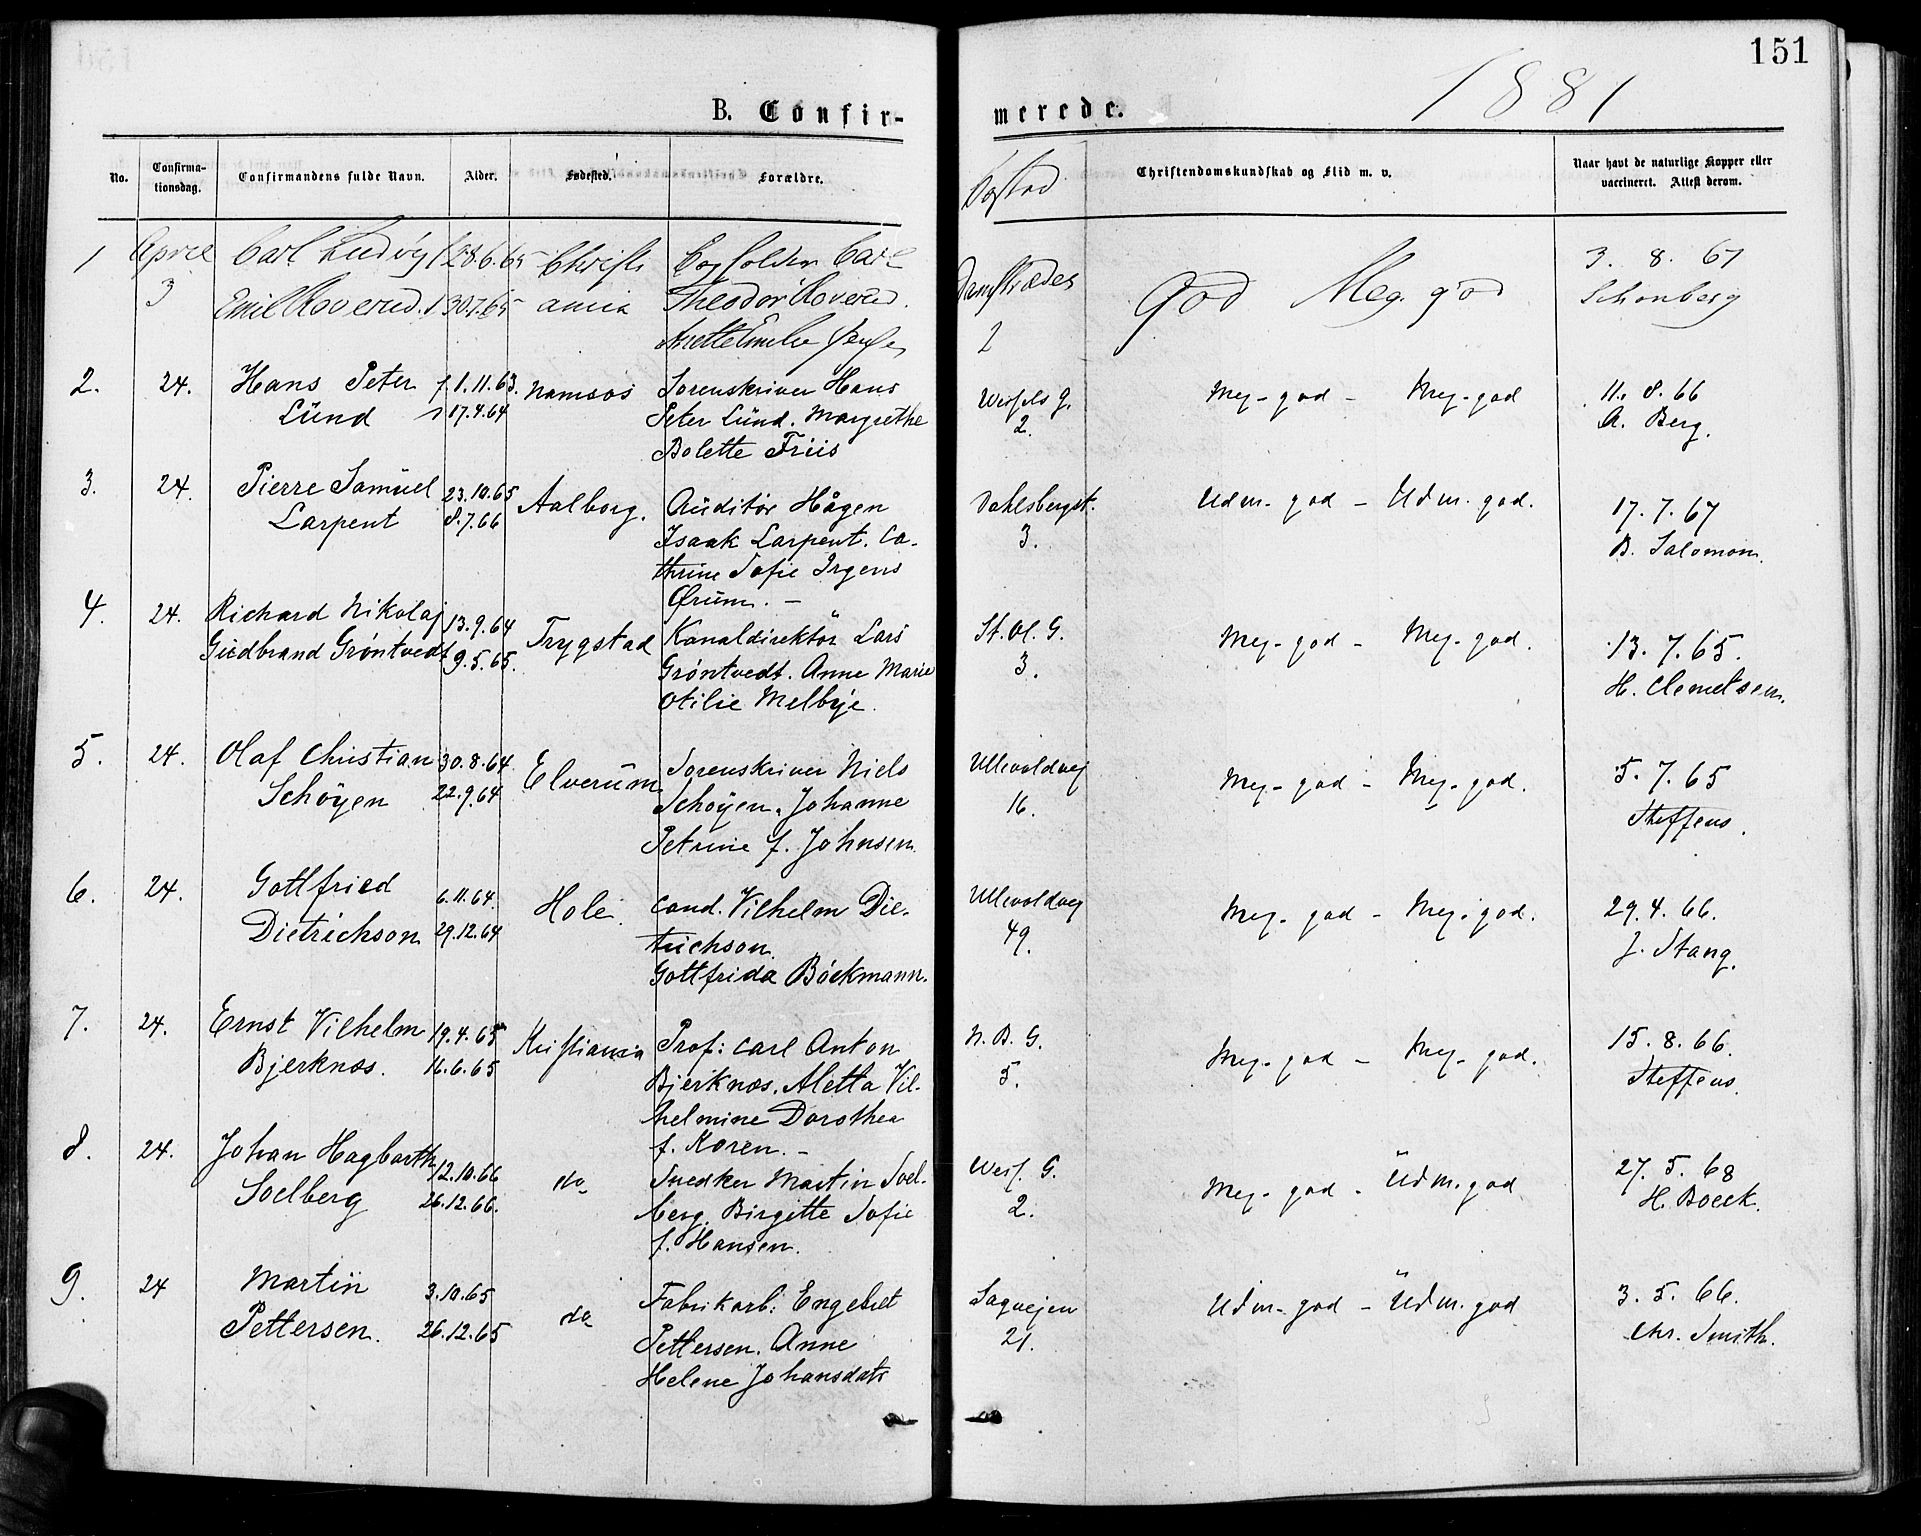 151
1881
B. Confir-
merede.
No.
Confirma-
tionsdag.
Confirmandens fulde Navn.
Alder.
Fødested.
Forældre.
Bosted
Christendomskundskab og Flid m. v.
Naar havt de naturlige Kopper eller
vaccineret. Attest derom.
1 April Carl Ludvig f 28.6.65 Christi Carl
3 Emil Hoverud. 30.7.65 ania Theodor Hoverud.
Damstrædet
2
God Meg. god
3. 8. 67
Schønberg
2. 24. Hans Peter f 1.11.63. Namsos Sorenskriver Hans
Lünd 17.4.64 Peter Lünd. Margrethe
Bolette Friis
Wessels g.
2.
Meg. god - Meg. god
11. 8. 66
A. Berg.
3. 24. Pierre Samüel 23.10.65 Aalborg. Aüditør Hågen
Larpent 8.7.66 Isaak Larpent. Ca-
thrine Sofie Irgens
Ørum. -
Dahlsbergst.
3.
Udm. god - Udm. god.
17. 7. 67
B. Salomon.
4. 24. Richard Nikolaj 13.9.64 Trygstad Kanaldirektør Lars
Gudbrand Grøntvedt 9.5.65. Grøntvedt. Anne Marie
Otilie Melbye.
St. Ol. G.
3.
Meg. god - Meg. god.
13. 7. 65.
H. Clemetsen.
5. 24. Olaf Christian 30.8.64 Elverüm Sorenskriver Niels
Schøyen 22.9.64 Schøyen. Johanne
Petrine f. Johnsen.
Ullevoldvej
16.
Meg. god - Meg. god.
5. 7. 65
Steffens.
6. 24. Gottfried 6.11.64. Hole. cand. Vilhelm Die-
Dietrichson 29.12.64 trichson.
Gottfrida Böckmann.
Ullevoldvej
49.
Meg. god - Meg. god.
29. 4. 66.
J. Stang.
7. 24. Ernst Vilhelm 19.4.65 Kristiania Prof: Carl Anton
Bjerknæs. 16.6.65 Bjerknæs. Aletta Vil-
helmine Dorothea
f. Koren. -
N. B. G.
5.
Meg. god - Meg. god.
15. 8. 66.
Steffens.
8. 24. Johan Hagbarth 12.10.66 do Snedker Martin Soel-
Soelberg 26.12.66. berg. Birgitte Sofie
f. Hansen.
Wess. G.
2.
Meg. god - Udm. god
27. 5. 68
H. Boeck.
9. 24 Martin 3.10.65 do Fabrikarb: Engebret
Pettersen. 26.12.65 Pettersen. Anne
Helene Johansdatr
Sagvejen
21.
Udm. god - Udm. god
3. 5. 66.
Chr. Smith.